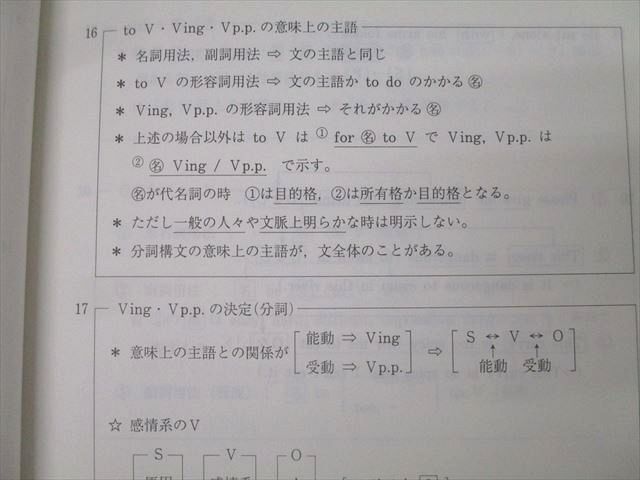 16 to V・Ving・Vp.p. の意味上の主語
* 名詞用法, 副詞用法 ⇨ 文の主語と同じ
* to V の形容詞用法 ⇨ 文の主語か to do のかかる㊔
* Ving, Vp.p. の形容詞用法 ⇨ それがかかる㊔
* 上述の場合以外は to V は ① for ㊔ to V で Ving, Vp.p. は
② ㊔ Ving / Vp.p. で示す。
㊔が代名詞の時 ①は目的格, ②は所有格か目的格となる。
* ただし一般の人々や文脈上明らかな時は明示しない。
* 分詞構文の意味上の主語が, 文全体のことがある。
17 Ving・Vp.p. の決定(分詞)
* 意味上の主語との関係が [能動 ⇒ Ving ⇨ [S ↔ V ↔ O]
受動 ⇒ Vp.p.] ↑能動 ↑受動
☆ 感情系のV
S V O